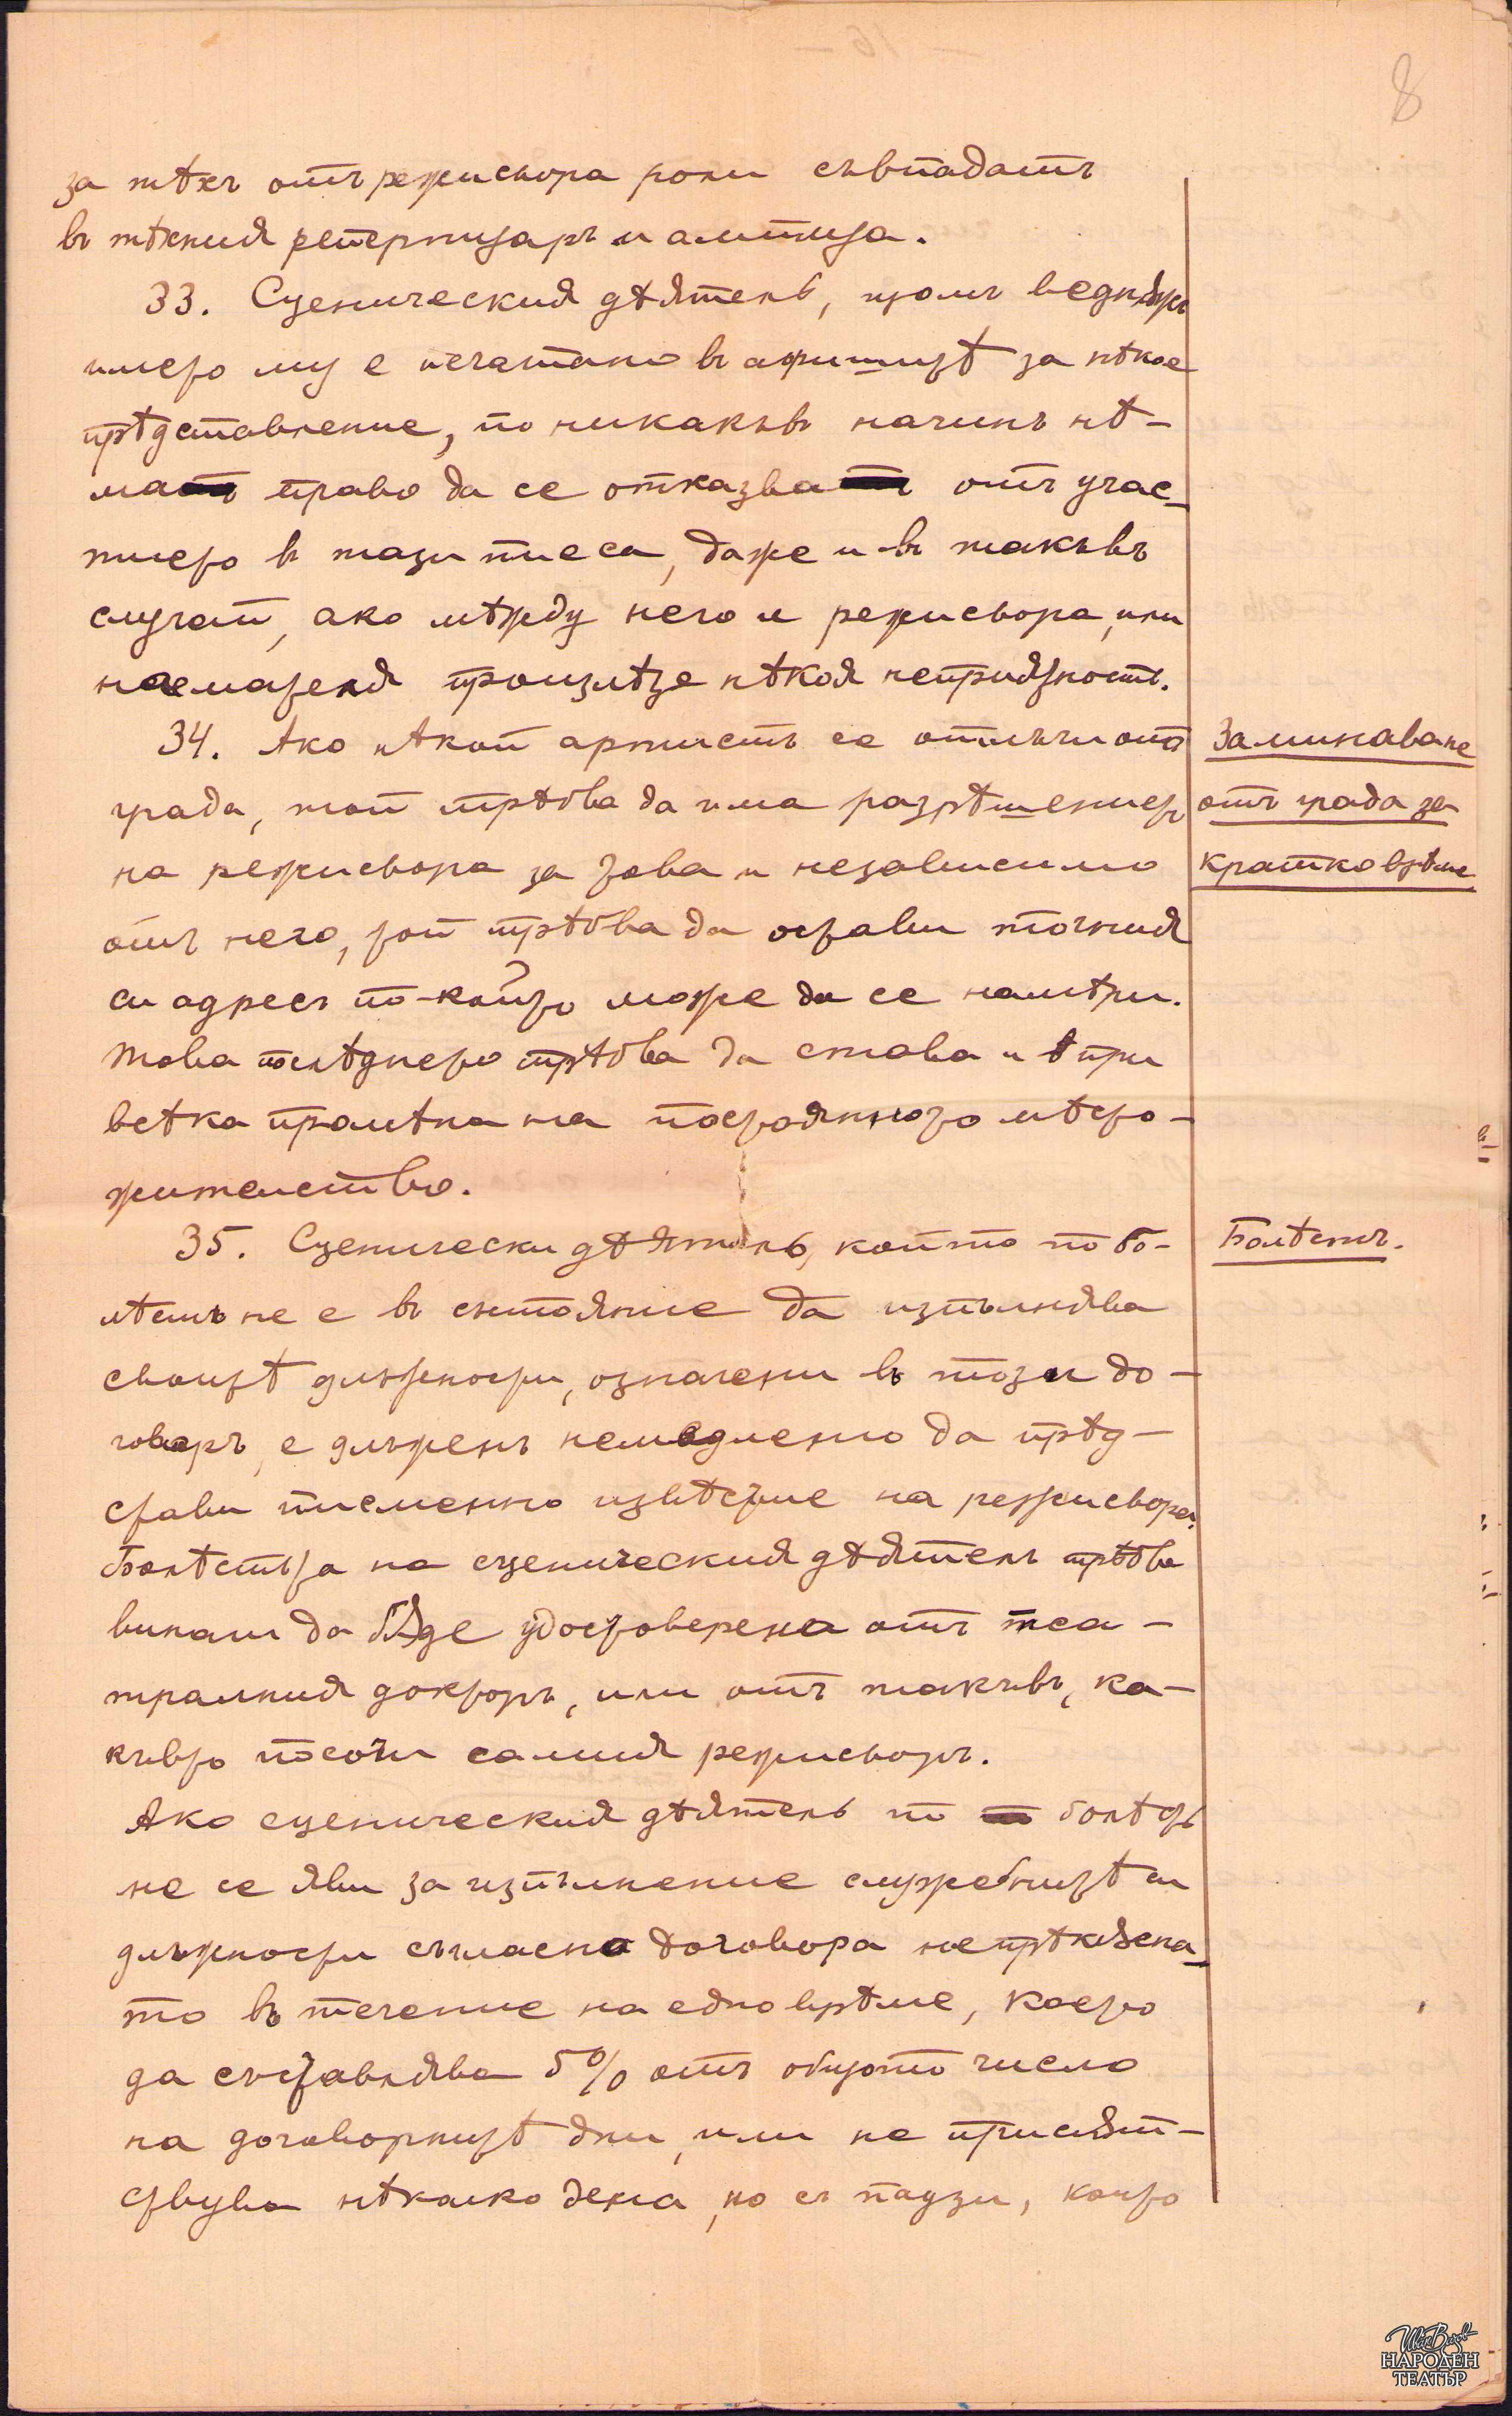 8
за тѣхъ отъ режисьора роли съвпадатъ
въ тѣхния репертуаръ и амплуа.
33. Сценическия дѣятель, щомъ веднѫжъ
името му е печатано въ афишитѣ за нѣкое
прѣдставление, по никакъвъ начинъ нѣ-
ма право да се отказва отъ учас-
тието въ тази пиеса, даже и въ такъвъ
случай, ако мѣжду него и режисьора, или
наемателя произлѣзе нѣкоя неприятность.
34. Ако нѣкой артистъ се отлъчи отъ
града, той трѣбва да има разрѣшението
на режисьора за това и независимо
отъ него, той трѣбва да остави точния
си адресъ по-който може да се намѣри.
Това послѣднето трѣбва да става и при
всѣка промѣна на постоянното мѣсто-
жителство.
Заминаване
отъ града за
кратко врѣме
35. Сценически дѣятель, който по бо-
лѣсть не е въ състояние да изпълнява
своитѣ длъжности, означени въ този до-
говоръ, е длъженъ немедленно да прѣд-
стави писменно извѣстие на режисьора.
Болѣстьта на сценическия дѣятель трѣбва
винаги да бѫде удостоверена отъ теа-
тралния докторъ, или отъ такъвъ, ка-
къвто посочи самия режисьоръ.
Ако сценическия дѣятель по болѣсть
не се яви за изпълнение служебнитѣ си
длъжности съгласно договора непрѣкѫсна-
то въ течение на едно врѣме, което
да съставлява 5% отъ общото число
на договорнитѣ дни, или не присѫт-
ствува нѣколко дена, но съ паузи, които
Болѣсть.
Ив. Вазов
НАРОДЕН
ТЕАТЪР